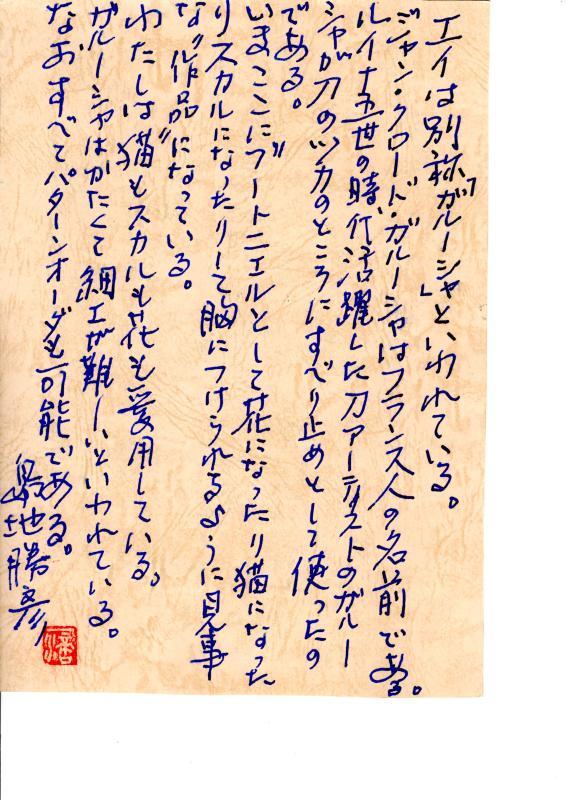 エイは別称「ガルーシャ」といわれている。
ジャン・クロード・ガルーシャはフランス人の名前である。
ルイ十五世の時代活躍した刀アーティストのガルー
シャが刀のツカのところにすべり止めとして使ったの
である。
いまここに"ブートニエルとして花になったり猫になった
りスカルになったりして胸につけられるように見事
な"作品"になっている。
わたしは猫もスカルも花も愛用している。
ガルーシャはかたくて細工が難しいといわれている。
なおすべてパターンオーダーも可能である。
島地勝彦